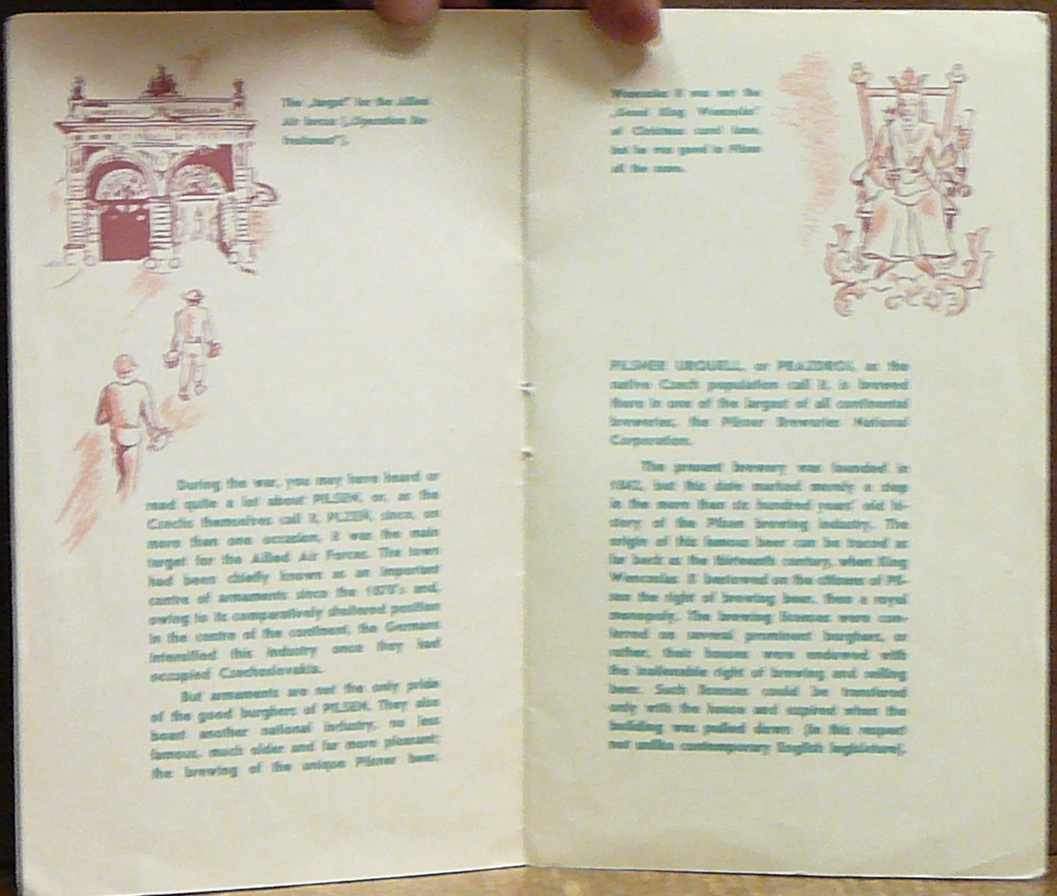 The „target" for the Allied
Air forces („Operation Re-
freshment").
During the war, you may have heard or
read quite a lot about PILSEN, or, as the
Czechs themselves call it, PLZEŇ, since, on
more than one occasion, it was the main
target for the Allied Air Forces. The town
had been chiefly known as an important
centre of armaments since the 1870's and,
owing to its comparatively sheltered position
in the centre of the continent, the Germans
intensified this industry once they had
occupied Czechoslovakia.
But armaments are not the only pride
of the good burghers of PILSEN. They also
boast another national industry, no less
famous, much older and far more pleasant:
the brewing of the unique Pilsner beer.
Wenceslas II was not the
„Good King Wenceslas"
of Christmas carol fame,
but he was good to Pilsen
all the same.
PILSNER URQUELL, or PRAZDROJ, as the
native Czech population call it, is brewed
there in one of the largest of all continental
breweries, the Pilsner Breweries National
Corporation.
The present brewery was founded in
1842, but this date marked merely a step
in the more than six hundred years' old hi-
story of the Pilsen brewing industry. The
origin of this famous beer can be traced as
far back as the thirteenth century, when King
Wenceslas II bestowed on the citizens of Pil-
sen the right of brewing beer, then a royal
monopoly. The brewing licenses were con-
ferred on several prominent burghers, or
rather, their houses were endowed with
the inalienable right of brewing and selling
beer. Such licenses could be transferred
only with the house and expired when the
building was pulled down (in this respect
not unlike contemporary English legislature).